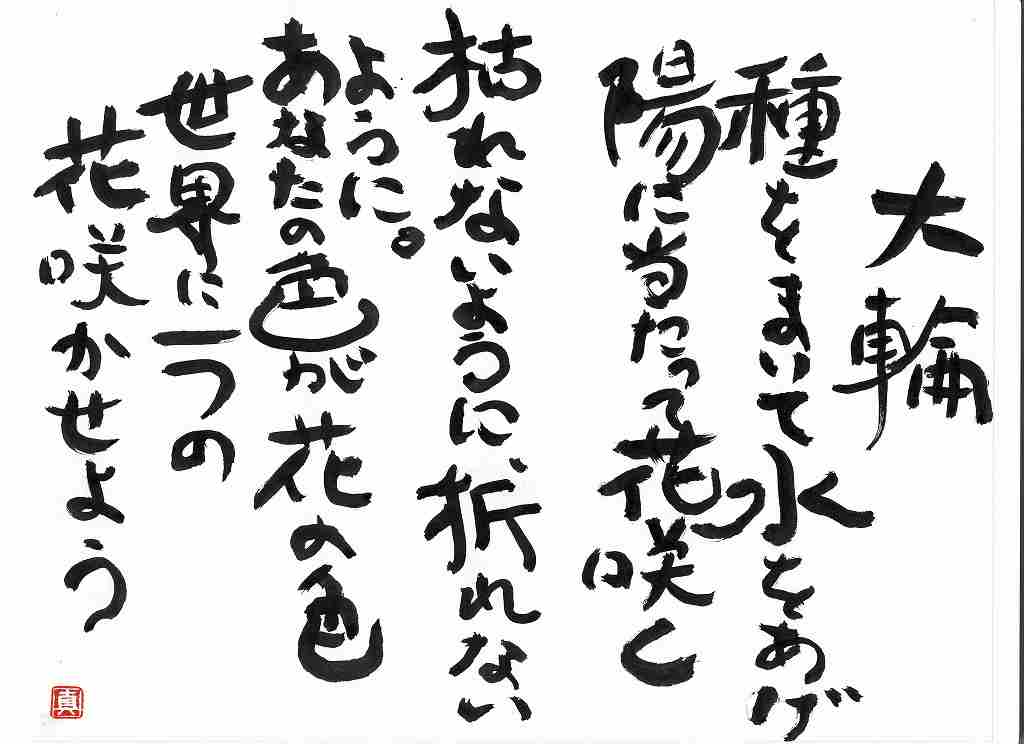 大輪
種をまいて水をあげ
陽に当たって花咲く
枯れないように、折れない
ように。
あなたの色が花の色
世界に一つの
花咲かせよう
真